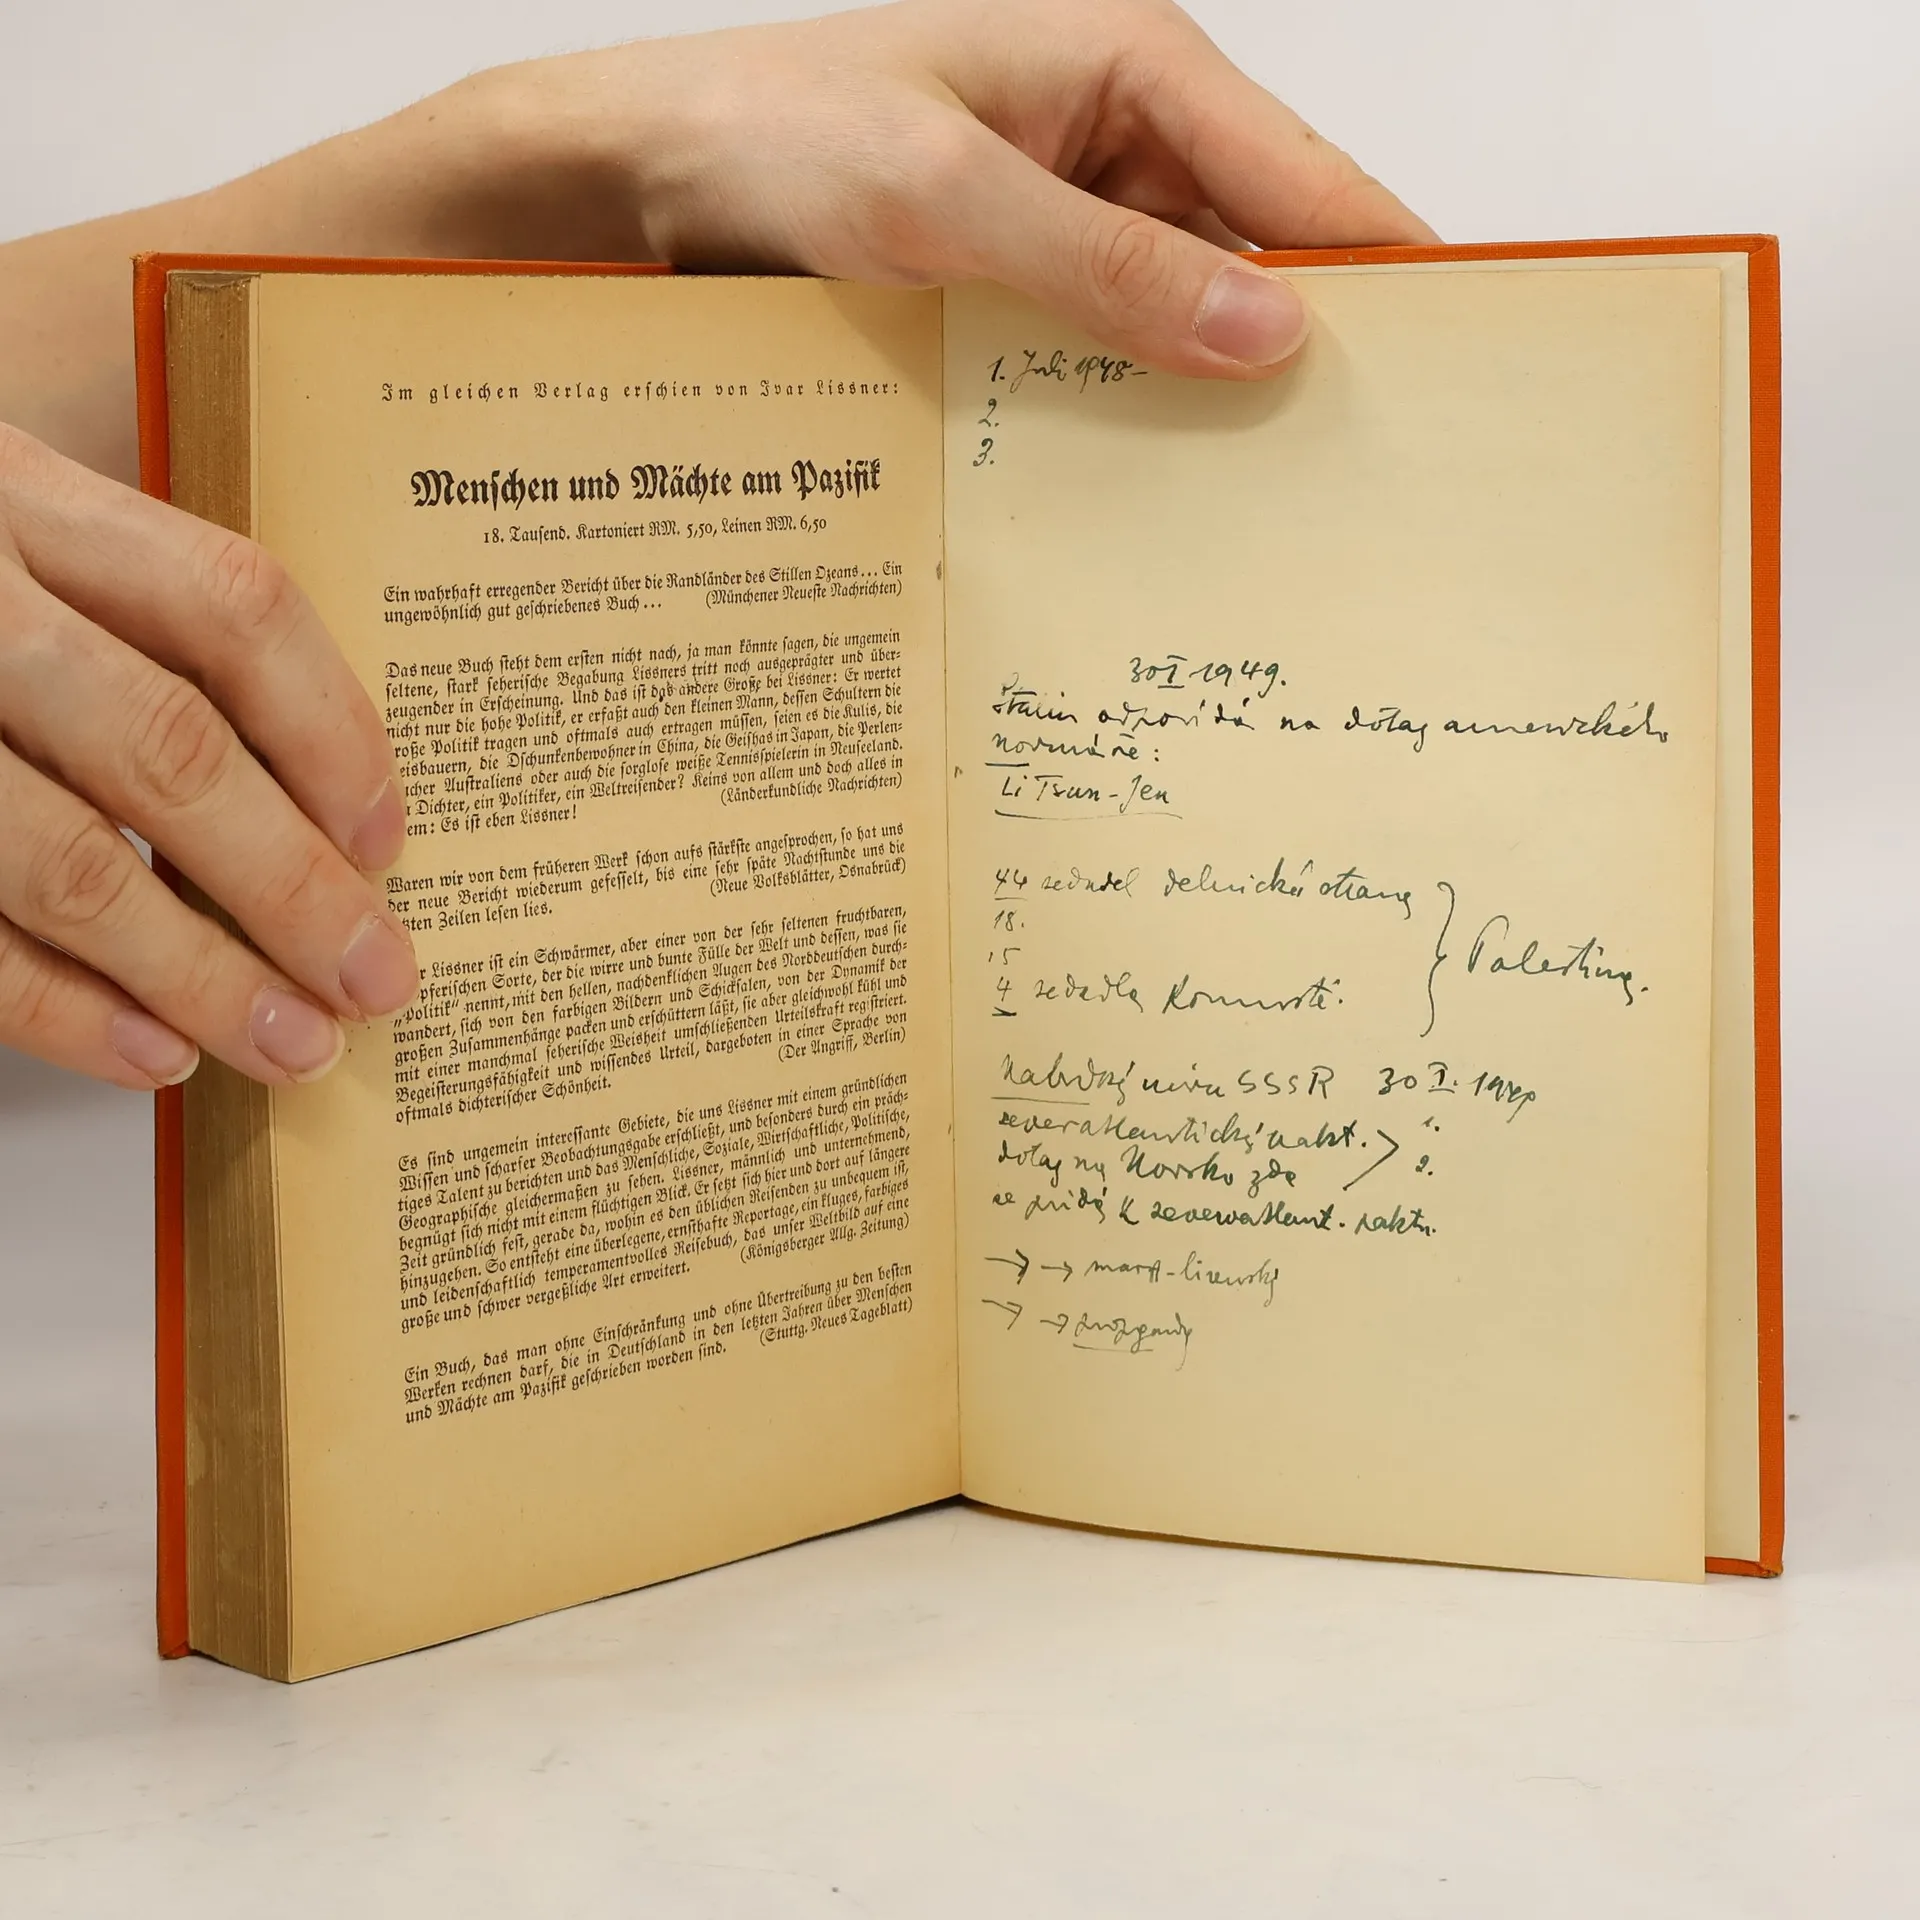 Im gleichen Verlag erschien von Ivar Lissner:
Menschen und Mächte am Pazifik
18. Tausend. Kartoniert RM. 5,50, Leinen RM. 6,50
Ein wahrhaft erregender Bericht über die Randländer des Stillen Ozeans... Ein
ungewöhnlich gut geschriebenes Buch... (Münchener Neueste Nachrichten)
Das neue Buch steht dem ersten nicht nach, ja man könnte sagen, die ungemein
seltene, stark seherische Begabung Lissners tritt noch ausgeprägter und über-
zeugender in Erscheinung. Und das ist das andere Große bei Lissner: Er wertet
nicht nur die hohe Politik, er erfaßt auch den kleinen Mann, dessen Schultern die
große Politik tragen und oftmals auch ertragen müssen, seien es die Kulis, die
eisbauern, die Dschunkenbewohner in China, die Geishas in Japan, die Perlen-
ucher Australiens oder auch die sorglose weiße Tennisspielerin in Neuseeland.
Dichter, ein Politiker, ein Weltreisender? Keins von allem und doch alles in
em: Es ist eben Lissner! (Länderkundliche Nachrichten)
Waren wir von dem früheren Werk schon aufs stärkste angesprochen, so hat uns
der neue Bericht wiederum gefesselt, bis eine sehr späte Nachtstunde uns die
ten Zeilen lesen lies. (Neue Volksblätter, Osnabrück)
r Lissner ist ein Schwärmer, aber einer von der sehr seltenen fruchtbaren,
pferischen Sorte, der die wirre und bunte Fülle der Welt und dessen, was sie
„Politik“ nennt, mit den hellen, nachdenklichen Augen des Norddeutschen durch-
wandert, sich von den farbigen Bildern und Schicksalen, von der Dynamik der
großen Zusammenhänge packen und erschüttern läßt, sie aber gleichwohl kühl und
mit einer manchmal seherische Weisheit umschließenden Urteilskraft registriert.
Begeisterungsfähigkeit und wissendes Urteil, dargeboten in einer Sprache von
oftmals dichterischer Schönheit. (Der Angriff, Berlin)
Es sind ungemein interessante Gebiete, die uns Lissner mit einem gründlichen
Wissen und scharfer Beobachtungsgabe erschließt, und besonders durch ein präch-
tiges Talent zu berichten und das Menschliche, Soziale, Wirtschaftliche, Politische,
Geographische gleichermaßen zu sehen. Lissner, männlich und unternehmend,
begnügt sich nicht mit einem flüchtigen Blick. Er setzt sich hier und dort auf längere
Zeit gründlich fest, gerade da, wohin es den üblichen Reisenden zu unbequem ist,
hinzugehen. So entsteht eine überlegene, ernsthafte Reportage, ein kluges, farbiges
und leidenschaftlich temperamentvolles Reisebuch, das unser Weltbild auf eine
große und schwer vergeßliche Art erweitert. (Königsberger Allg. Zeitung)
Ein Buch, das man ohne Einschränkung und ohne Übertreibung zu den besten
Werken rechnen darf, die in Deutschland in den letzten Jahren über Menschen
und Mächte am Pazifik geschrieben worden sind. (Stuttg. Neues Tageblatt)
1. Juli 1948-
2.
3.
30 I 1949.
Stalin odpovídá na dotaz amerického
novináře:
Li Tsun-Jen
44 sedadel delnická strana
18.
15
4 sedadla Komunisté.
Palestina.
Nabídka míru SSSR 30 I. 1949
severatlantický pakt. 1.
dotaz na Norsko zda 2.
se přidá k severoatlant. paktu.
→ → marx-
→ →